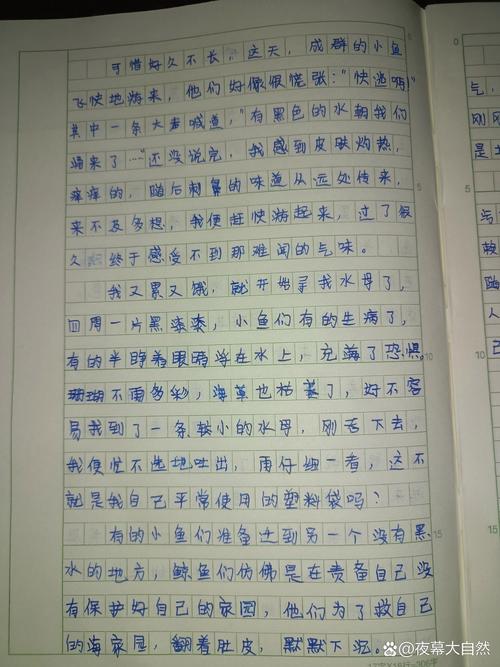 可惜好久不长，这天，成群的小鱼
飞快地游来，他们好像很慌张："快逃啊"
其中一条大声喊道，"有黑色的水朝我们
涌来了……"还没说完，我感到皮肤灼热，
痒痒的，随后刺鼻的味道从远处传来，
来不及多想，我便赶快游起来，过了很
久 终于感受不到那难闻的气味。
我又累又饿，就开始寻找水母了，
四周一片黑漆漆，小鱼们有的生病了，
有的半睁着眼睛浮在水上，充满了恐惧。
珊瑚不再多彩，海草也枯萎了，好不容
易我找到了一条较小的水母，刚吞下去，
我便忙不迭地吐出，再仔细一看，这不
就是我自己平常使用的塑料袋吗？
有的小鱼们准备迁到另一个没有黑
水的地方，鲸鱼们仿佛是在责备自己没
有保护好自己的家园，他们为了救自己
的海家园，翻着肚皮，默默下沉。
气，
刚
是
5
5
10
15
15
0
@夜幕大自然